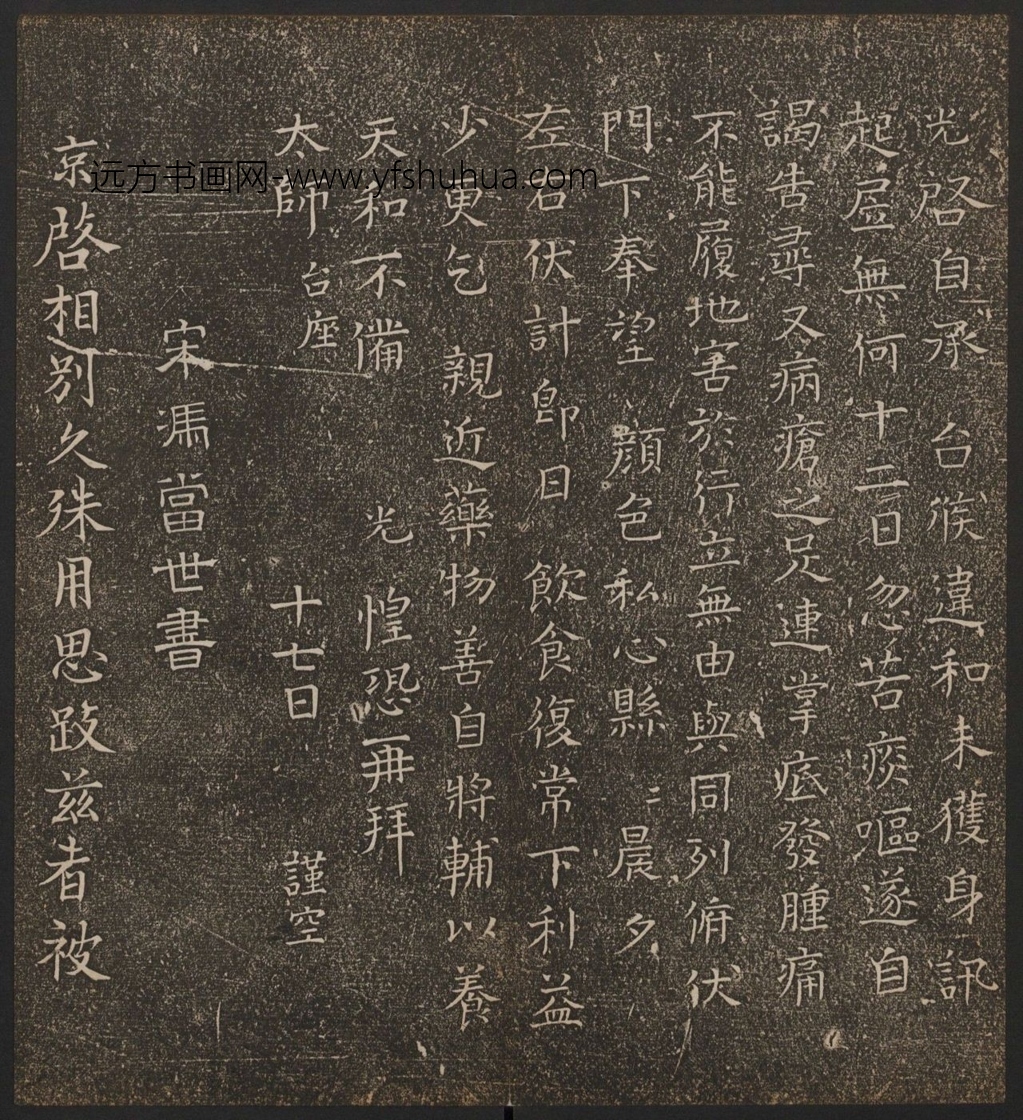 光啓自承 台候違和未獲身訊
起居無何十二日忽苦痰嘔遂自
謁告尋又病瘡之足連掌底發腫痛
不能履地害於行立無由與同列俯伏
門下奉望 顏色私心縣〻晨夕
左右伏計即日 飲食復常下利益
少更乞 親近藥物善自將輔以養
天和不備 光 惶恐再拜
太師 台座 十七日 謹空
宋馮當世書
京啓相別久殊用思跂茲者被
远方书画网-www.yfshuhua.com